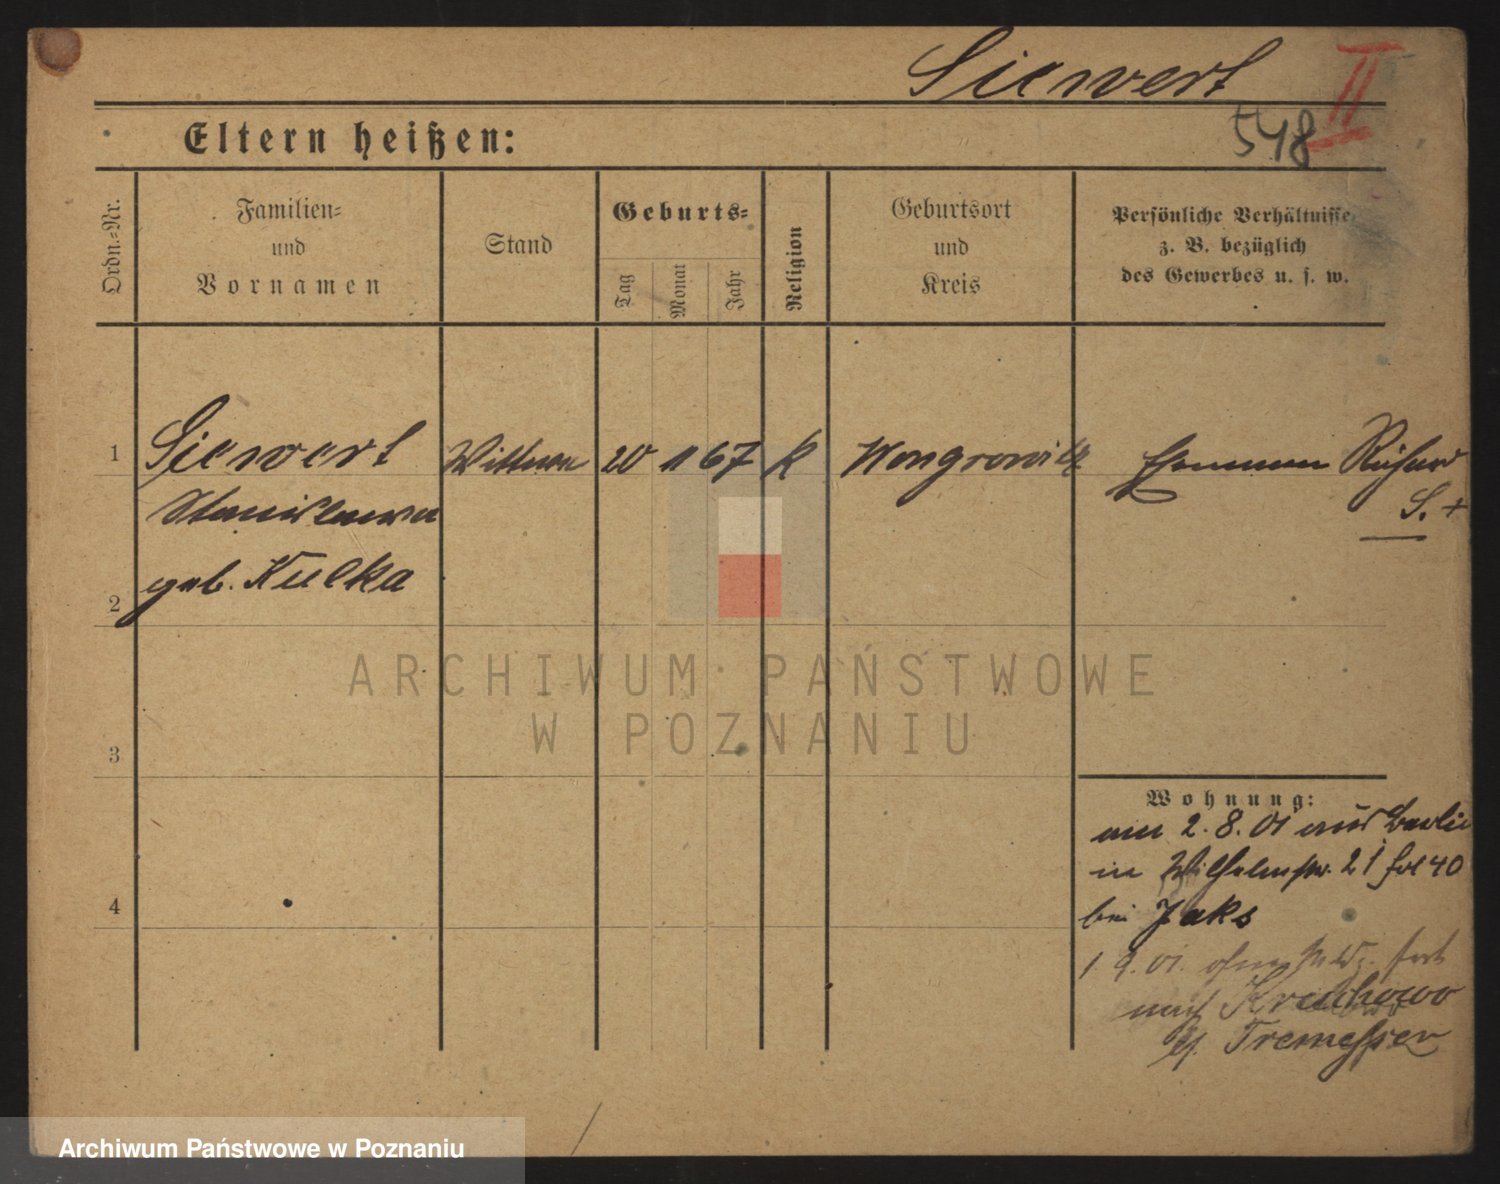 Siewert
II
548
Eltern heißen:
Ordn.-Nr.
Familien-
und
Vornamen
Stand
Geburts-
Tag
Monat
Jahr
Religion
Geburtsort
und
Kreis
Persönliche Verhältnisse
z. B. bezüglich
des Gewerbes u. s. w.
1 Siewert Wittwe 20 11 67 k Wongrowitz Ehemann Richard
Stanislawa S. +
geb. Kulka
2
ARCHIWUM PAŃSTWOWE
W POZNANIU
3
Wohnung:
am 2. 8. 01 aus Berlin
in Wilhelmstr. 21 fol 40
4
bei Jaks
1 9. 01. fort
nach Kruchowo
Tremessen
Archiwum Państwowe w Poznaniu